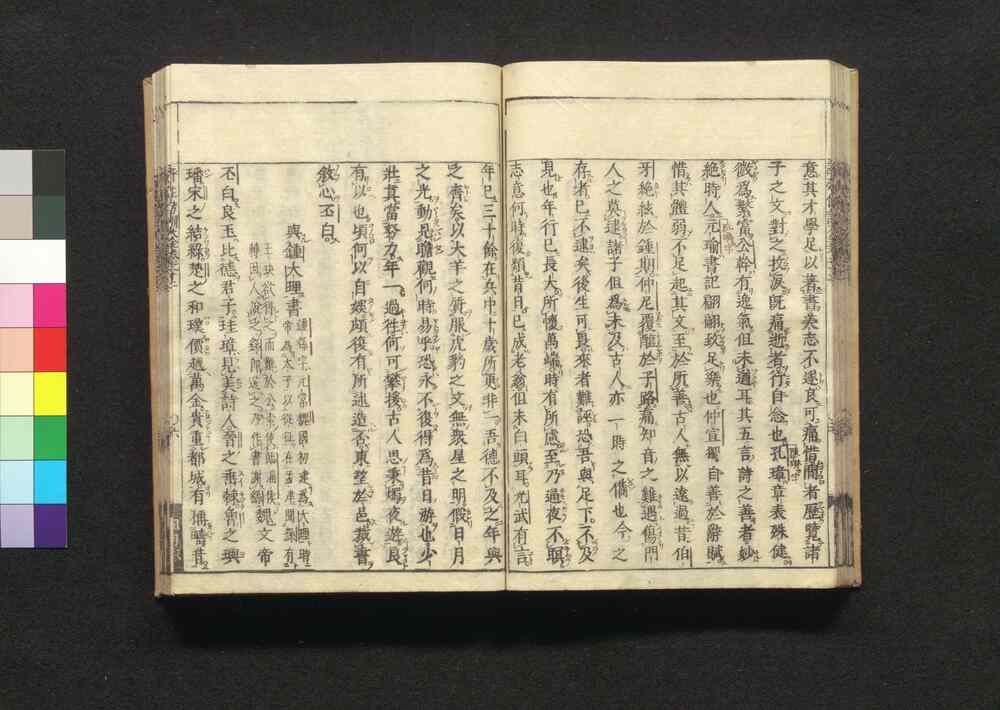 意其才學足以著書美志不遂良可痛惜間者歷覽諸
子之文對之抆淚既痛逝者行自念也孔璋章表殊健
微爲繁富公幹有逸氣但未遒耳其五言詩之善者妙
絶時人元瑜書記翩翩致足樂也仲宣獨自善於辭賦
惜其體弱不足起其文至於所善古人無以遠過昔伯
牙絶絃於鍾期仲尼覆醢於子路痛知音之難遇傷門
人之莫逮諸子但爲未及古人亦一時之儁也今之
存者已不逮矣後生可畏來者難誣恐吾與足下不及
見也年行已長大所懷萬端時有所慮至乃過夜不瞑
志意何時復類昔日已成老翁但未白頭耳光武有言
年已三十餘在兵中十歲所更非一吾德不及之年與
之齊矣以犬羊之質服虎豹之文無衆星之明假日月
之光動見瞻觀何時易乎恐永不復得爲昔日游也少
壯眞當努力年一過往何可攀援古人思秉燭夜遊良
有以也頃何以自娛頗復有所述造否東望於邑裁書
敘心丕白
與鍾大理書
魏文帝
丕白良玉比德君子珪璋見美詩人晉之垂棘魯之璵
璠宋之結綠楚之和璞價越萬金貴重都城有稱疇昔